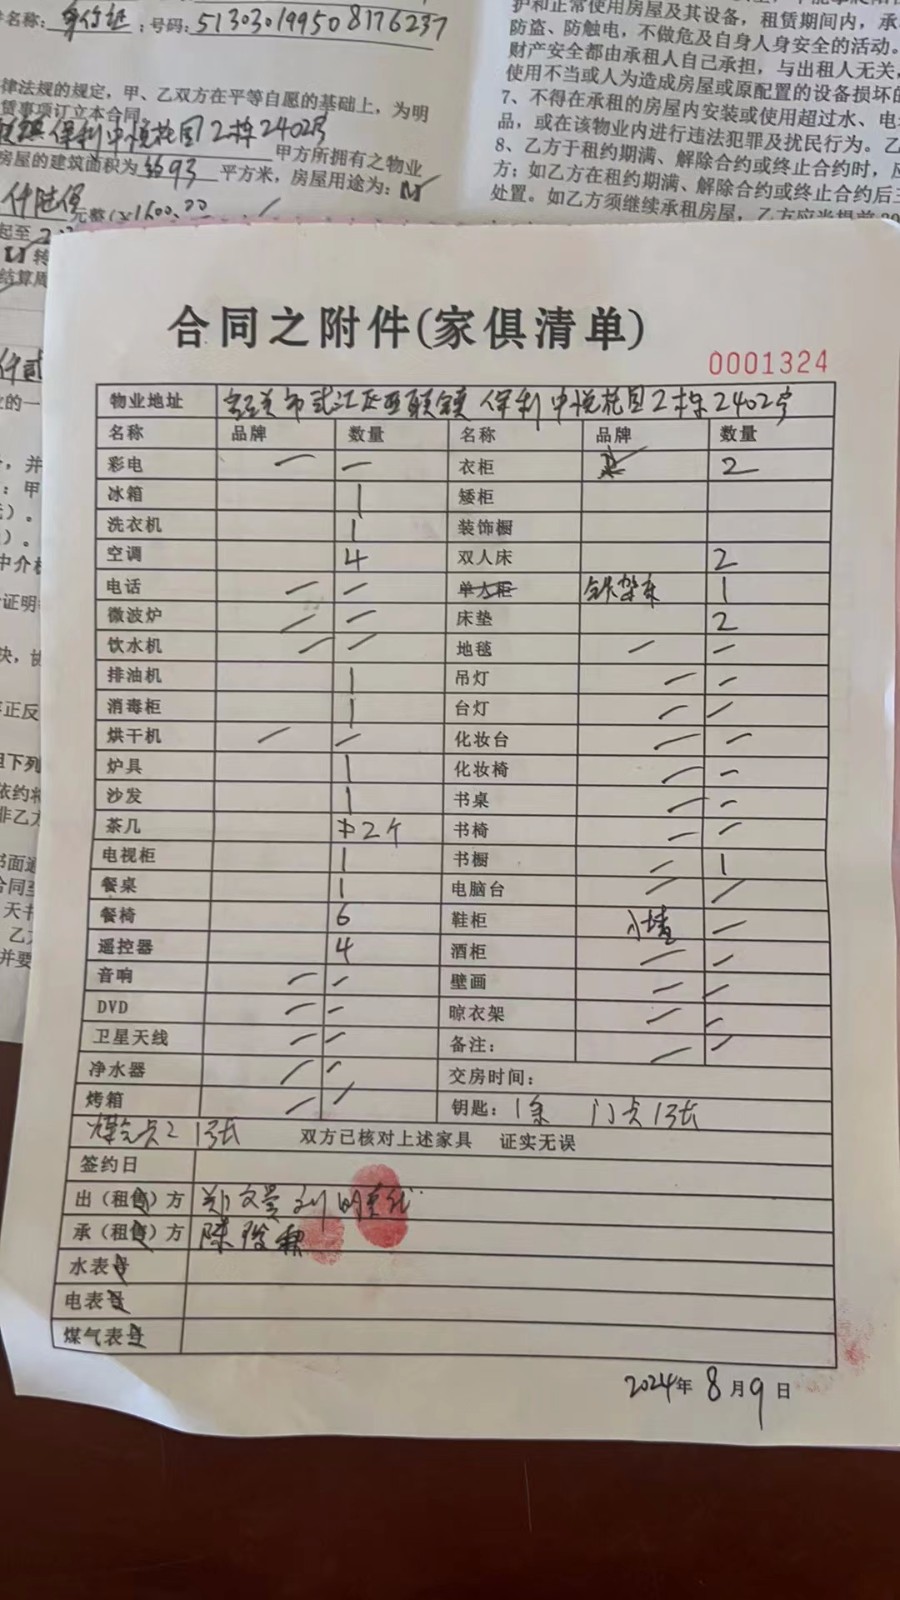 名称: 身份证 ; 号码: 513030199508176237
护和正常使用房屋及其设备，租赁期间内，承
防盗、防触电，不做危及自身人身安全的活动。
财产安全都由承租人自己承担，与出租人无关，
使用不当或人为造成房屋或原配置的设备损坏的
7、不得在承租的房屋内安装或使用超过水、电
品，或在该物业内进行违法犯罪及扰民行为。乙
8、乙方于租约期满、解除合约或终止合约时，应
方；如乙方在租约期满、解除合约或终止合约后三
处置。如乙方须继续承租房屋，乙方应当提前30
律法规的规定，甲、乙双方在平等自愿的基础上，为明
赁事项订立本合同
保利中悦花园2栋2402号
甲方所拥有之物业
房屋的建筑面积为 93 平方米，房屋用途为:
仟陆佰 元整(¥1600.00
起至
转
结算周
合同之附件(家俱清单)
0001324
物业地址 韶关市武江区西联镇保利中悦花园2栋2402号
名称 品牌 数量 名称 品牌 数量
彩电 一 一 衣柜 2
冰箱 1 矮柜
洗衣机 1 装饰橱
空调 4 双人床 2
电话 一 一 单人柜 铁架床 1
微波炉 一 一 床垫 2
饮水机 一 一 地毯 一 一
排油机 1 吊灯 一 一
消毒柜 1 台灯 一 一
烘干机 一 一 化妆台 一 一
炉具 1 化妆椅 一 一
沙发 1 书桌 一 一
茶几 2个 书椅 一 一
电视柜 1 书橱 一 1
餐桌 1 电脑台 一 一
餐椅 6 鞋柜 一
遥控器 4 酒柜 一 一
音响 一 一 壁画 一 一
DVD 一 一 晾衣架 一 一
卫星天线 一 一 备注: 一 一
净水器 一 一 交房时间:
烤箱 一 一 钥匙: 1条 门卡1张
煤气卡 1张 双方已核对上述家具 证实无误
签约日
出（租售）方 郑文景
承（租售）方 陈
水表号
电表号
煤气表号
2024年 8月9日